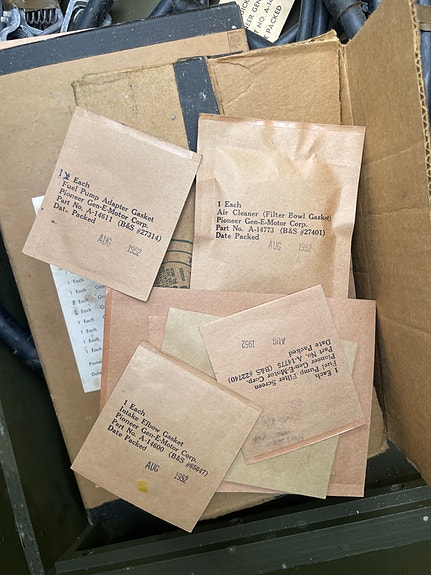 PIONEER GEN
PART NO. A-14
PACKED
1 Each
Fuel Pump Adapter Gasket
Pioneer Gen-E-Motor Corp.
Part No. A-14611 (B&S #27314)
Date Packed
AUG 1952
1 Each
Air Cleaner (Filter Bowl Gasket)
Pioneer Gen-E-Motor Corp.
Part No. A-14773 (B&S #27401)
Date Packed
AUG 1952
1 Each
1 Each
1 Each
1 Each
1 Each
1 Each
Fuel Pump Filter Screen
Pioneer Gen-E-Motor Corp.
Part No. A-14775 (B&S #22740)
Date Packed
AUG 1952
1 Each
Intake Elbow Gasket
Pioneer Gen-E-Motor Corp.
Part No. A-14600 (B&S #65647)
Date Packed
AUG 1952